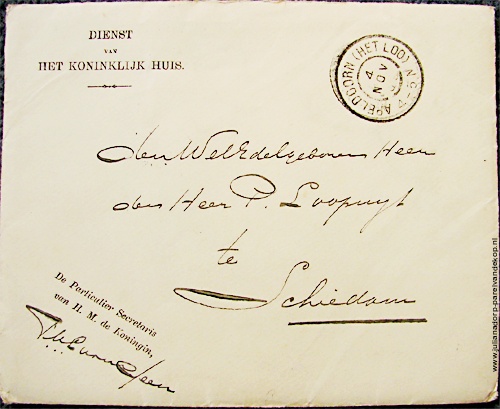 DIENST
VAN
HET KONINKLIJK HUIS.
APELDOORN (HET LOO)
4
NOV
den WelEdelgeboren Heer
den Heer P. Loopuyt
te
Schiedam
De Particulier Secretaris
van H. M. de Koningin,
www.julianajorp-parelvandekop.nl